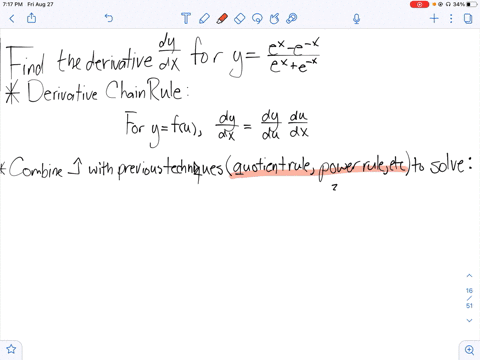 7:17 PM Fri Aug 27
34%
Find the derivative dy/dx for y = (eˣ - e⁻ˣ)/(eˣ + e⁻ˣ)
* Derivative Chain Rule:
For y=f(u), dy/dx = dy/du du/dx
* Combine ↑ with previous techniques (quotient rule, power rule, etc) to solve:
16
/
51